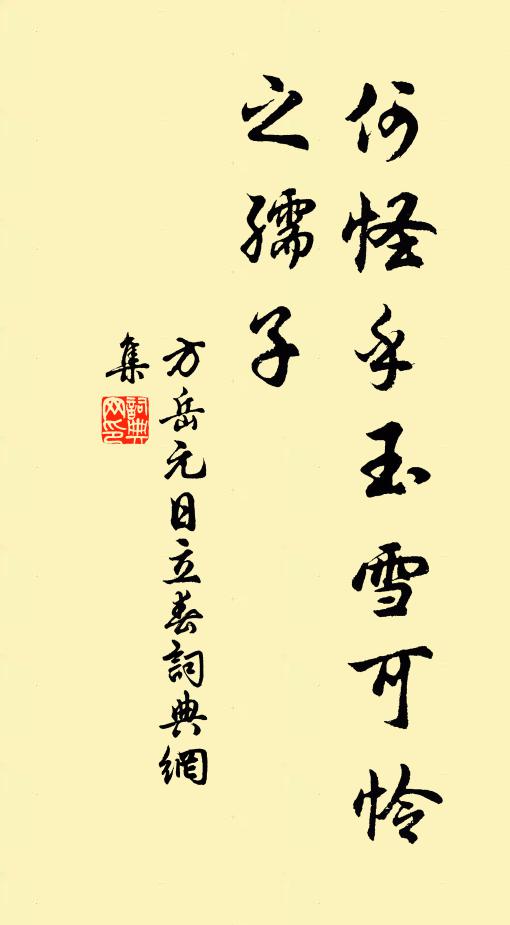 何怪乎玉雪可怜
之孺子
方岳元日立春詞典網
集
詞典网印